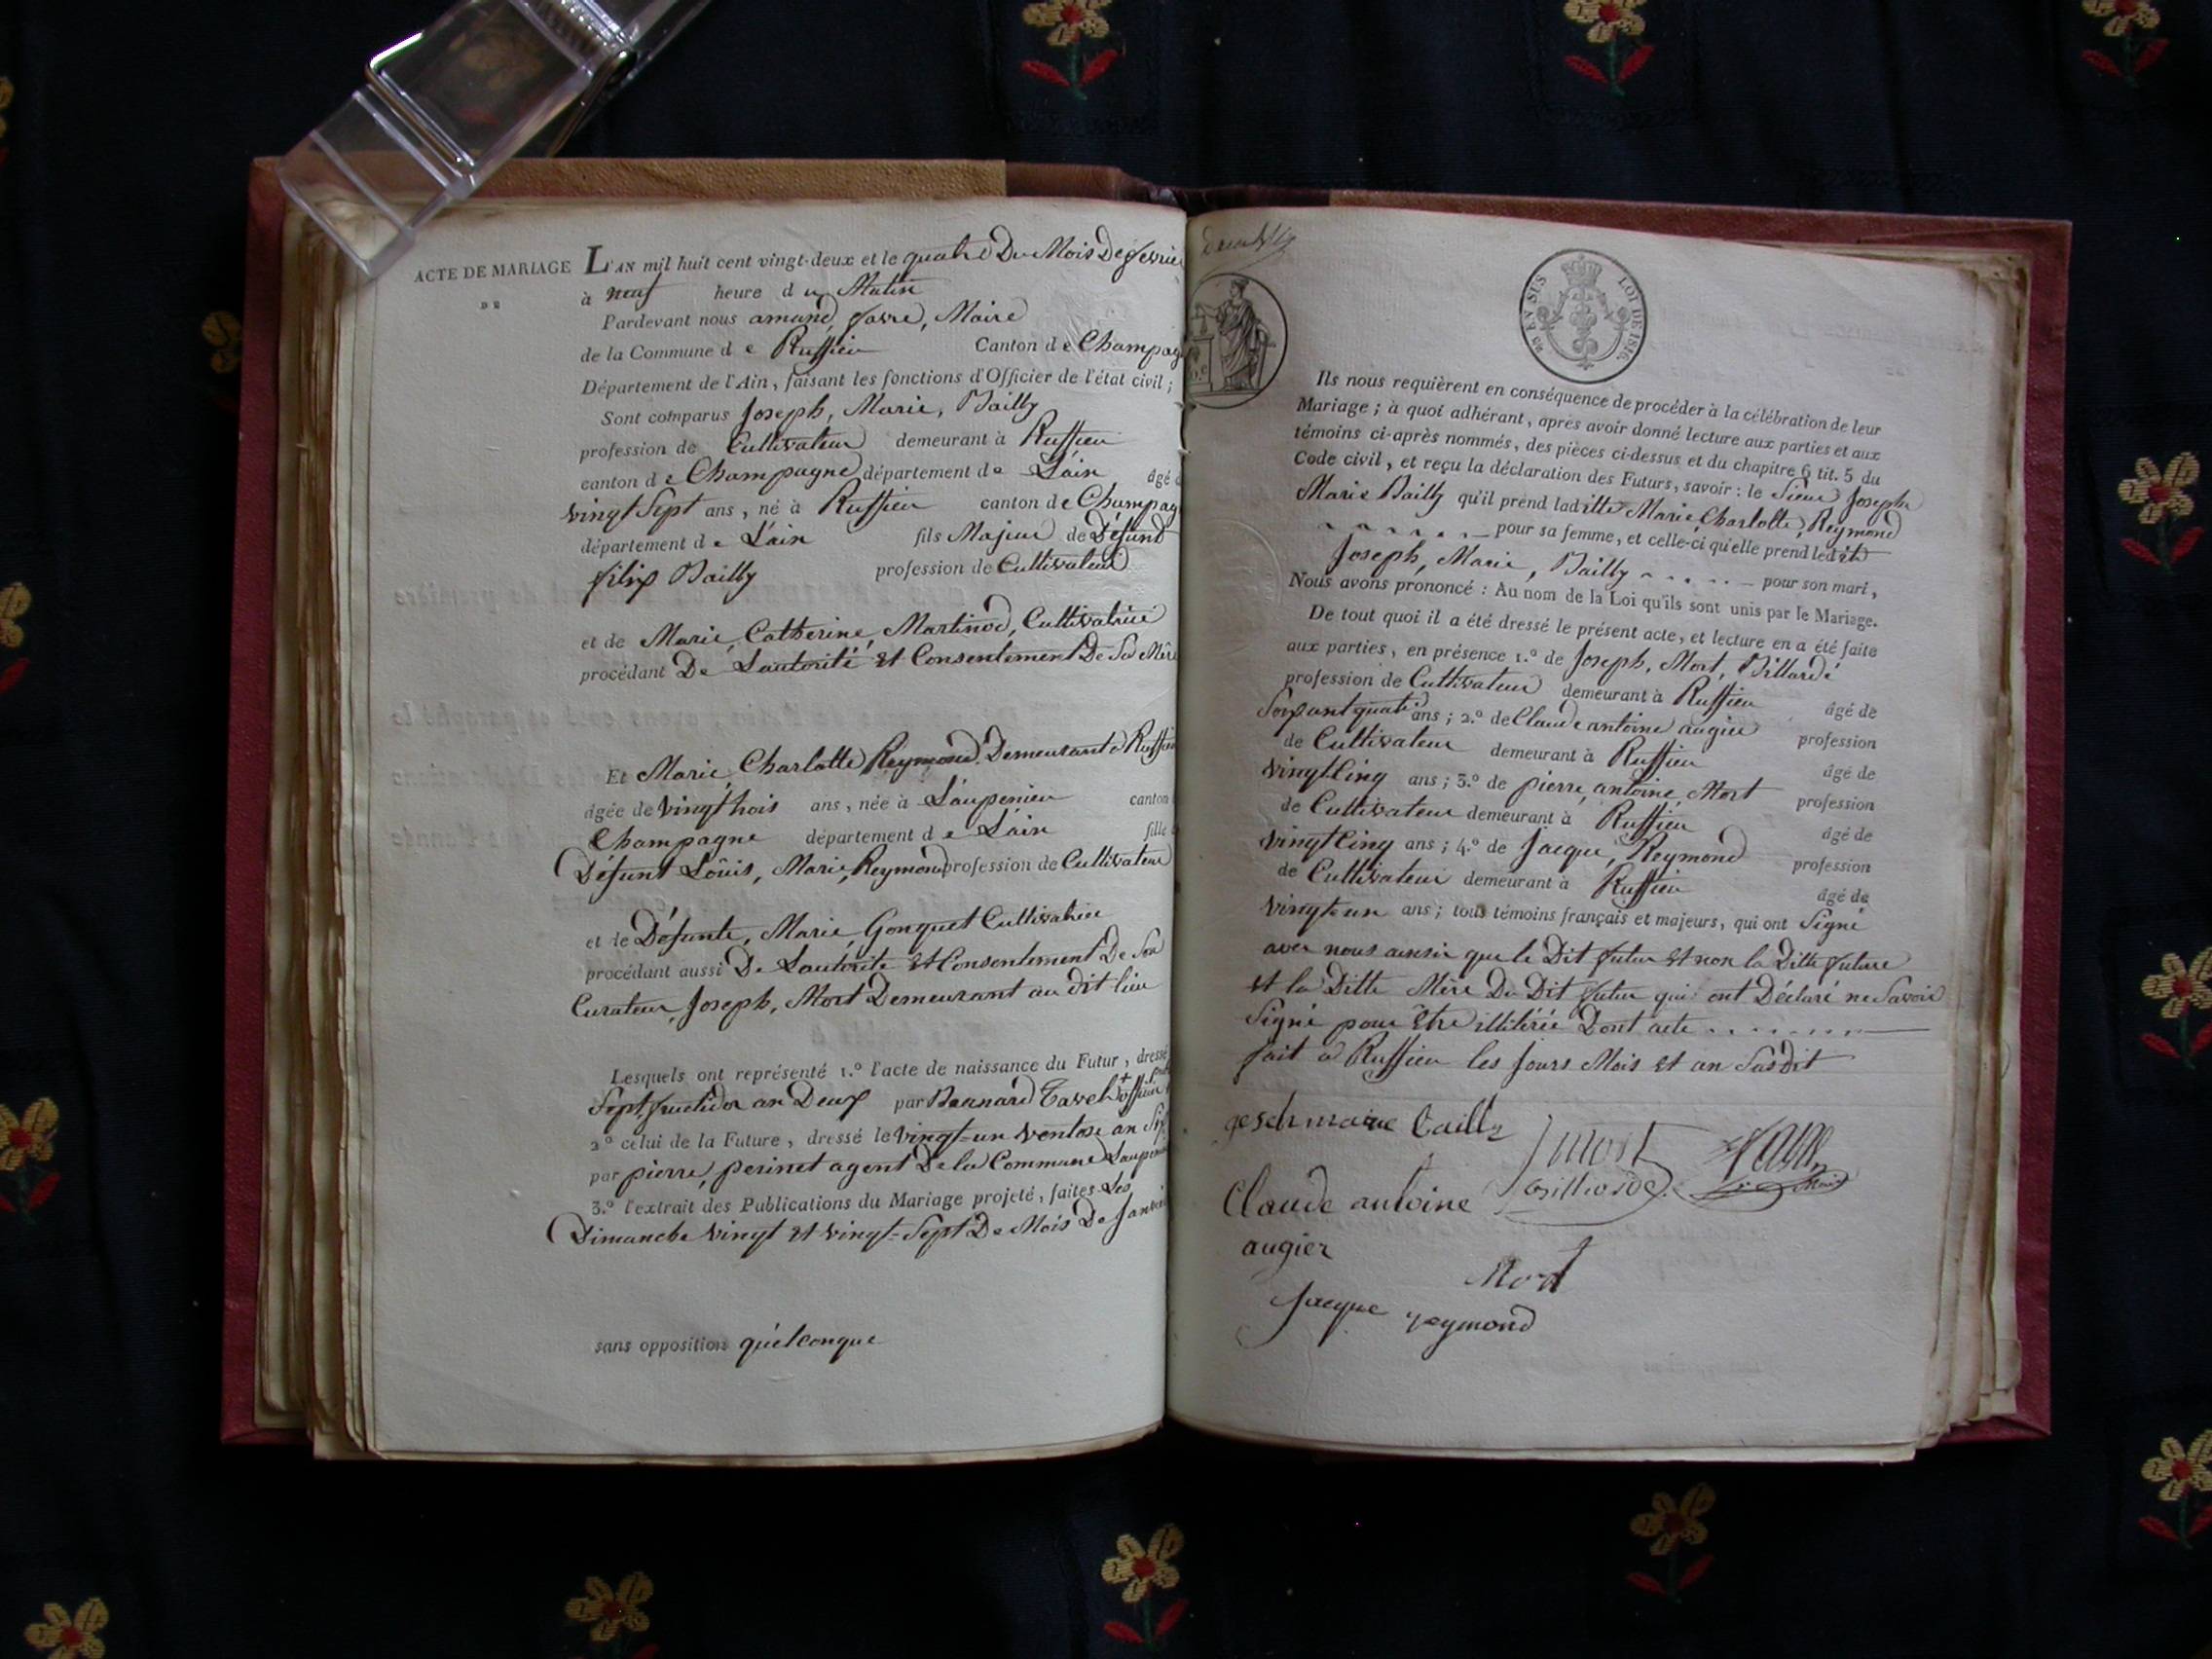 ACTE DE MARIAGE
DE
L'AN mil huit cent vingt-deux et le quatre Du Mois De fevrie
à neuf heure du Matin
Pardevant nous amand favre, Maire
de la Commune de Ruffieu Canton de Champag
Département de l'Ain, faisant les fonctions d'Officier de l'état civil;
Sont comparus Joseph, Marie, Bailly
profession de Cultivateur demeurant à Ruffieu
canton de Champagne département de L'ain âgé d
vingt Sept ans, né à Ruffieu canton de Champag
département de L'ain fils Majeur de Défund
filip Bailly profession de Cultivateur
et de Marie, Catherine, Martinod, Cultivatrice
procédant De L'autorité Et Consentement De Sa Mère
Et Marie, Charlotte Reymond Demeurant a Ruffieu
âgée de vingt trois ans, née à L'aupenieu canton
Champagne département de L'ain fille
Défunt Loüis, Marie, Reymond profession de Cultivateur
et de Défunte, Marie, Gonguet Cultivatrice
procédant aussi De L'autorite Et Consentement De Son
Curateur, Joseph, Mort Demeurant au dit lieu
Lesquels ont représenté 1.º l'acte de naissance du Futur, dressé
Sept fructidor an Deux par Bernard Tavel + officier
2º celui de la Future, dressé le vingt-un ventose an Six
par pierre, perinet agent De la Commune Laupenie
3.º l'extrait des Publications du Mariage projeté, faites Les
Dimanche vingt Et vingt-Sept De Mois De Janvie
sans opposition quelconque
EN SUS LOI DE 1816.
Ils nous requièrent en conséquence de procéder à la célébration de leur
Mariage; à quoi adhérant, après avoir donné lecture aux parties et aux
témoins ci-après nommés, des pièces ci-dessus et du chapitre 6 tit. 5 du
Code civil, et reçu la déclaration des Futurs, savoir: le Sieur Joseph
Marie Bailly qu'il prend laditte Marie, Charlotte, Reymond
pour sa femme, et celle-ci qu'elle prend ledit
Joseph, Marie, Bailly pour son mari,
Nous avons prononcé: Au nom de la Loi qu'ils sont unis par le Mariage.
De tout quoi il a été dressé le présent acte, et lecture en a été faite
aux parties, en présence 1.º de Joseph, Mort, Billardé
profession de Cultivateur demeurant à Ruffieu âgé de
Soixant quatre ans; 2.º de Claude antoine augier profession
de Cultivateur demeurant à Ruffieu âgé de
vingt Cinq ans; 3.º de pierre, antoine, Mort profession
de Cultivateur demeurant à Ruffieu âgé de
vingt Cinq ans; 4.º de Jacque, Reymond profession
de Cultivateur demeurant à Ruffieu âgé de
vingt-un ans; tous témoins français et majeurs, qui ont Signé
avec nous ainsi que le Dit futur Et non la Ditte future
Et la Ditte Mère Du Dit futur qui ont Déclaré ne Savoir
Signé pour Etre illitérée Dont acte
fait a Ruffieu les Jours Mois Et an Susdit
Claude antoine
augier
Mort
Jacque reymond